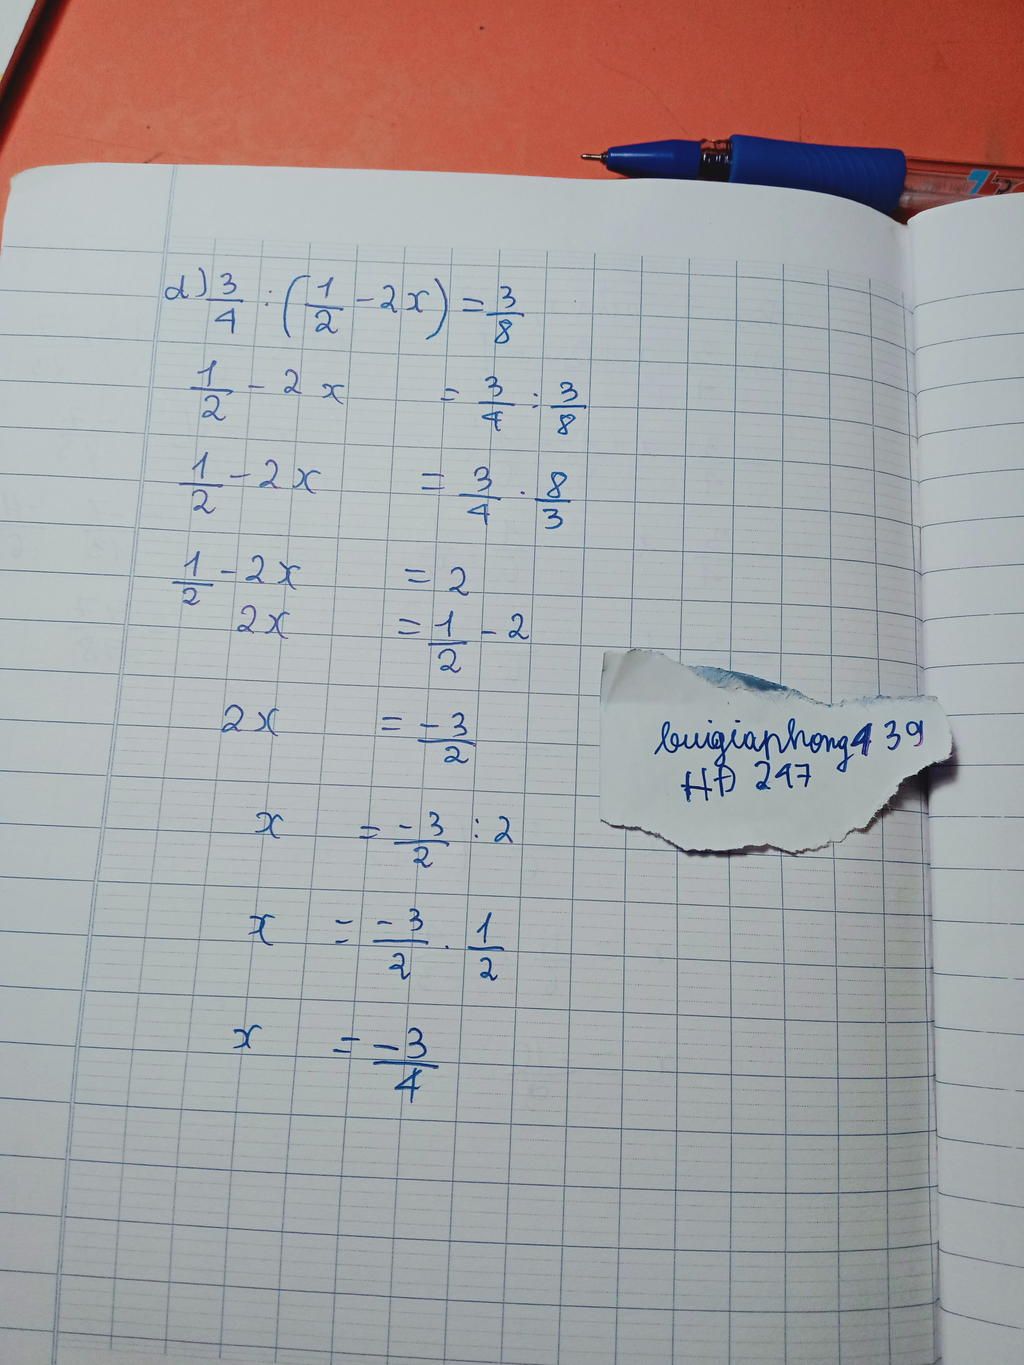 d) 3/4 : (1/2 - 2x) = 3/8
1/2 - 2x = 3/4 : 3/8
1/2 - 2x = 3/4 . 8/3
1/2 - 2x = 2
2x = 1/2 - 2
2x = -3/2
x = -3/2 : 2
x = -3/2 . 1/2
x = -3/4
buigiaphong4 39
HĐ 247